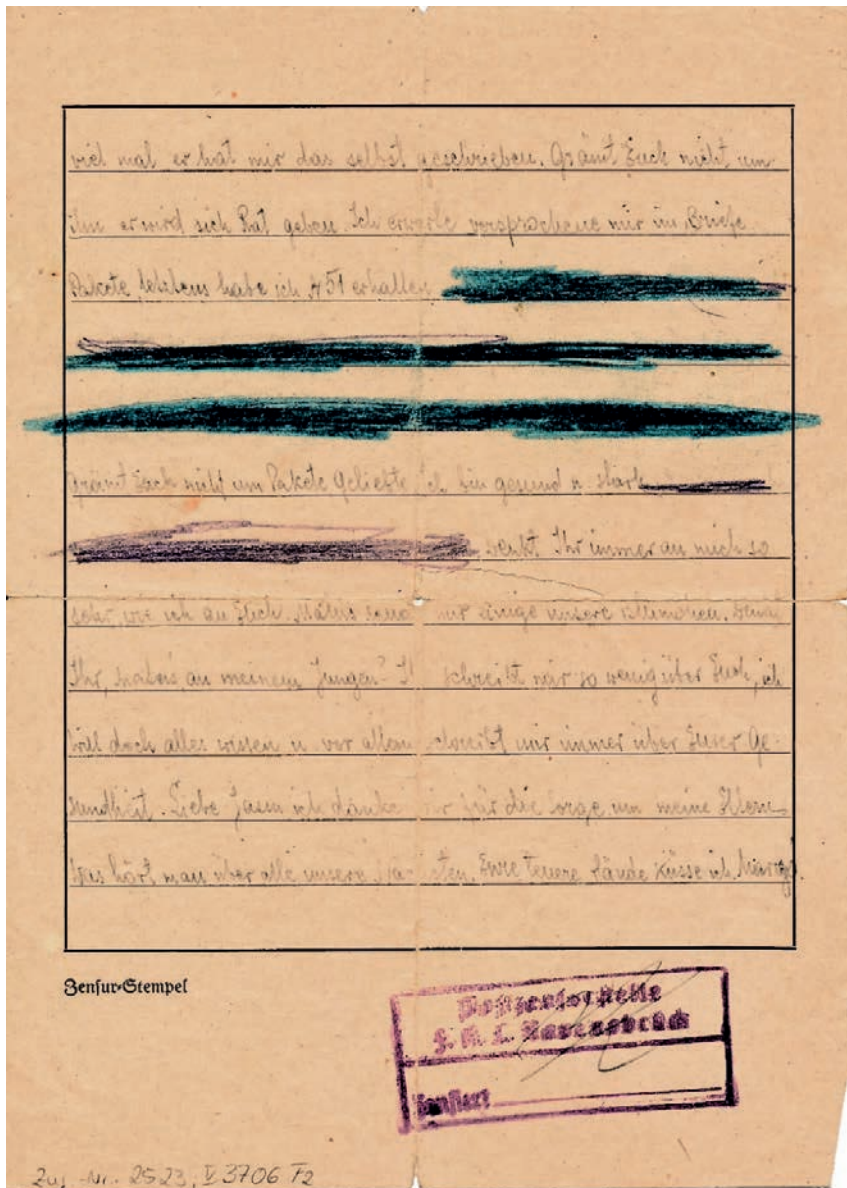 viel mal er hat mir das selbst geschrieben. Grämt Euch nicht um
ihn er wird sich Rat geben. Ich erwarte versprochene mir im Briefe
Pakete, letztens habe ich N 51 erhalten
Grämt Euch nicht um Pakete Geliebte, ich bin gesund u. stark
denkt Ihr immer an mich so
sehr, wie ich an Euch. einige unsere Blümchen. Denkt
Ihr, an meinem Jungen? schreibt mir so wenig über Euch, ich
will doch alles wissen u. vor allem schreibt mir immer über Euer Ge-
sundheit. Liebe ich danke Dir für die Sorge um meine Eltern
Was hört man über alle unsere Eure teuere Hände küsse ich.
Zensur-Stempel
Postzensorstelle
F. K. L. Ravensbrück
Zensiert
Zug.-Nr. 2523, V 3706 F2